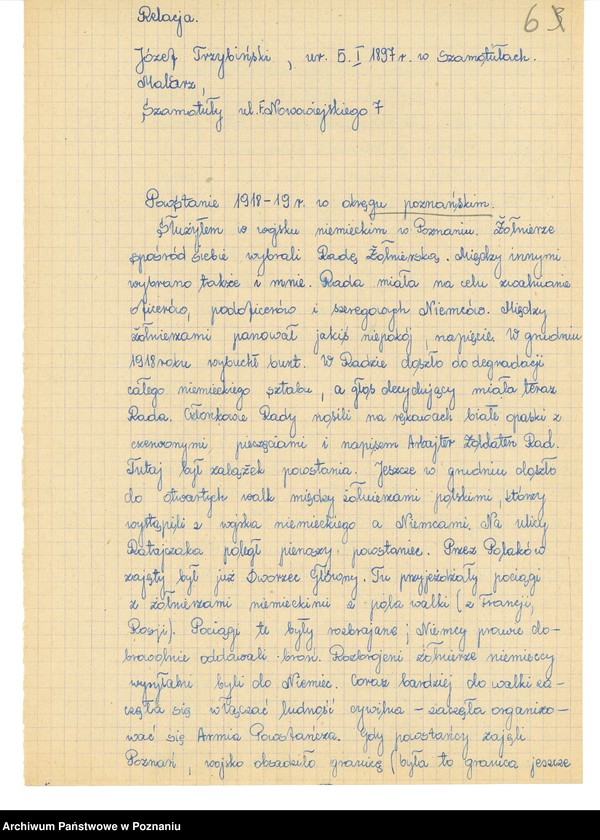 6
Relacja.
Józef Trzybiński, ur. 5. I 1897 r. w Szamotułach.
Malarz,
Szamotuły ul. F. Nowowiejskiego 7
Powstanie 1918-19 r. w okręgu poznańskim.
Służyłem w wojsku niemieckim w Poznaniu. Żołnierze
spośród siebie wybrali Radę Żołnierską. Między innymi
wybrano także i mnie. Rada miała na celu zwalnianie
oficerów, podoficerów i szeregowych Niemców. Między
żołnierzami panował jakiś niepokój, napięcie. W grudniu
1918 roku wybuchł bunt. W Radzie doszło do degradacji
całego niemieckiego sztabu, a głos decydujący miała teraz
Rada. Członkowie Rady nosili na rękawach białe opaski z
czerwonymi pieczęciami i napisem Arbajter Zoldaten Rad.
Tutaj był zalążek powstania. Jeszcze w grudniu doszło
do otwartych walk między żołnierzami polskimi, którzy
wystąpili z wojska niemieckiego a Niemcami. Na ulicy
Ratajczaka poległ pierwszy powstaniec. Przez Polaków
zajęty był już Dworzec Główny. Tu przyjeżdżały pociągi
z żołnierzami niemieckimi z pola walki (z Francji,
Rosji). Pociągi te były rozbrajane; Niemcy prawie do-
browolnie oddawali broń. Rozbrojeni żołnierze niemieccy
wysyłani byli do Niemiec. Coraz bardziej do walki za-
częła się włączać ludność cywilna - zaczęła organizo-
wać się Armia Powstańcza. Gdy powstańcy zajęli
Poznań, wojsko obsadziło granicę (była to granica jeszcze
Archiwum Państwowe w Poznaniu